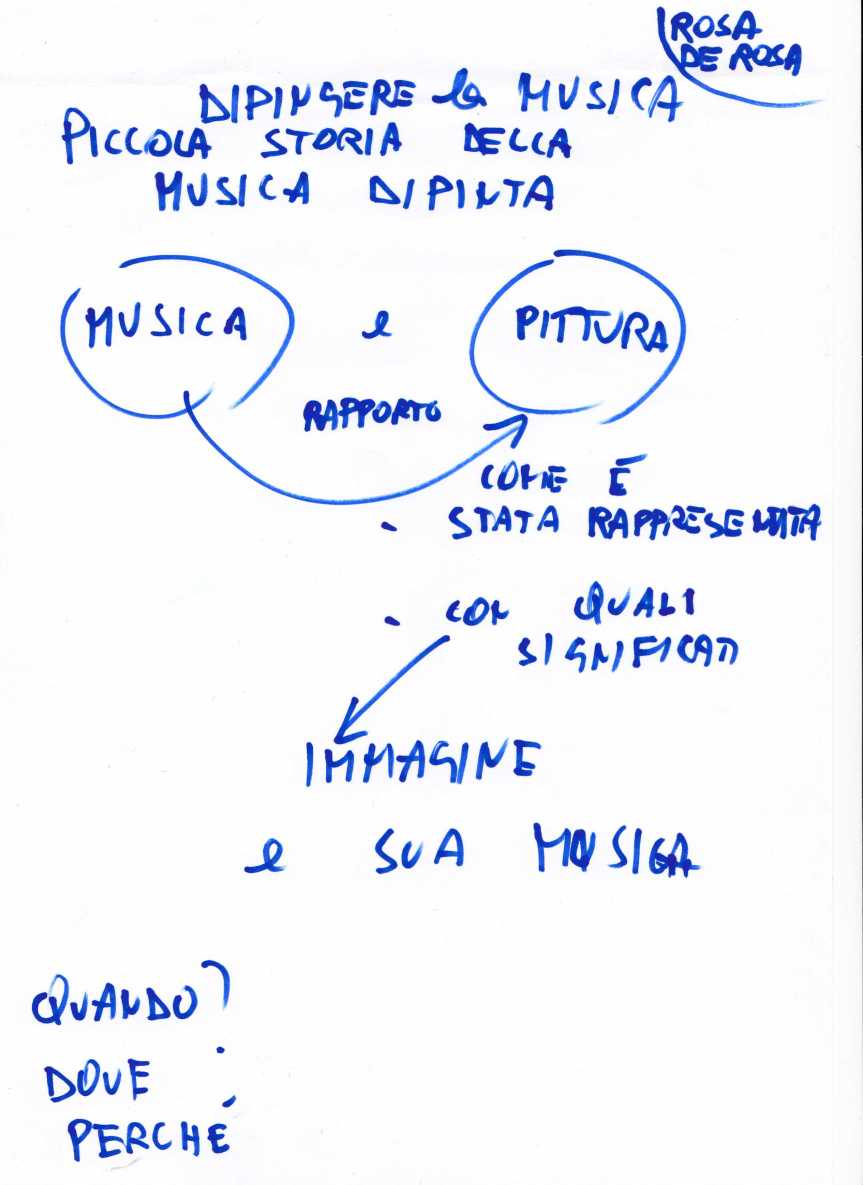 ROSA
DE ROSA
DIPINGERE la MUSICA
PICCOLA STORIA DELLA
MUSICA DIPINTA
MUSICA e PITTURA
RAPPORTO
COME È
- STATA RAPPRESENTATA
- CON QUALI
SIGNIFICATI
IMMAGINE
e SUA MUSICA
QUANDO?
DOVE
PERCHÉ